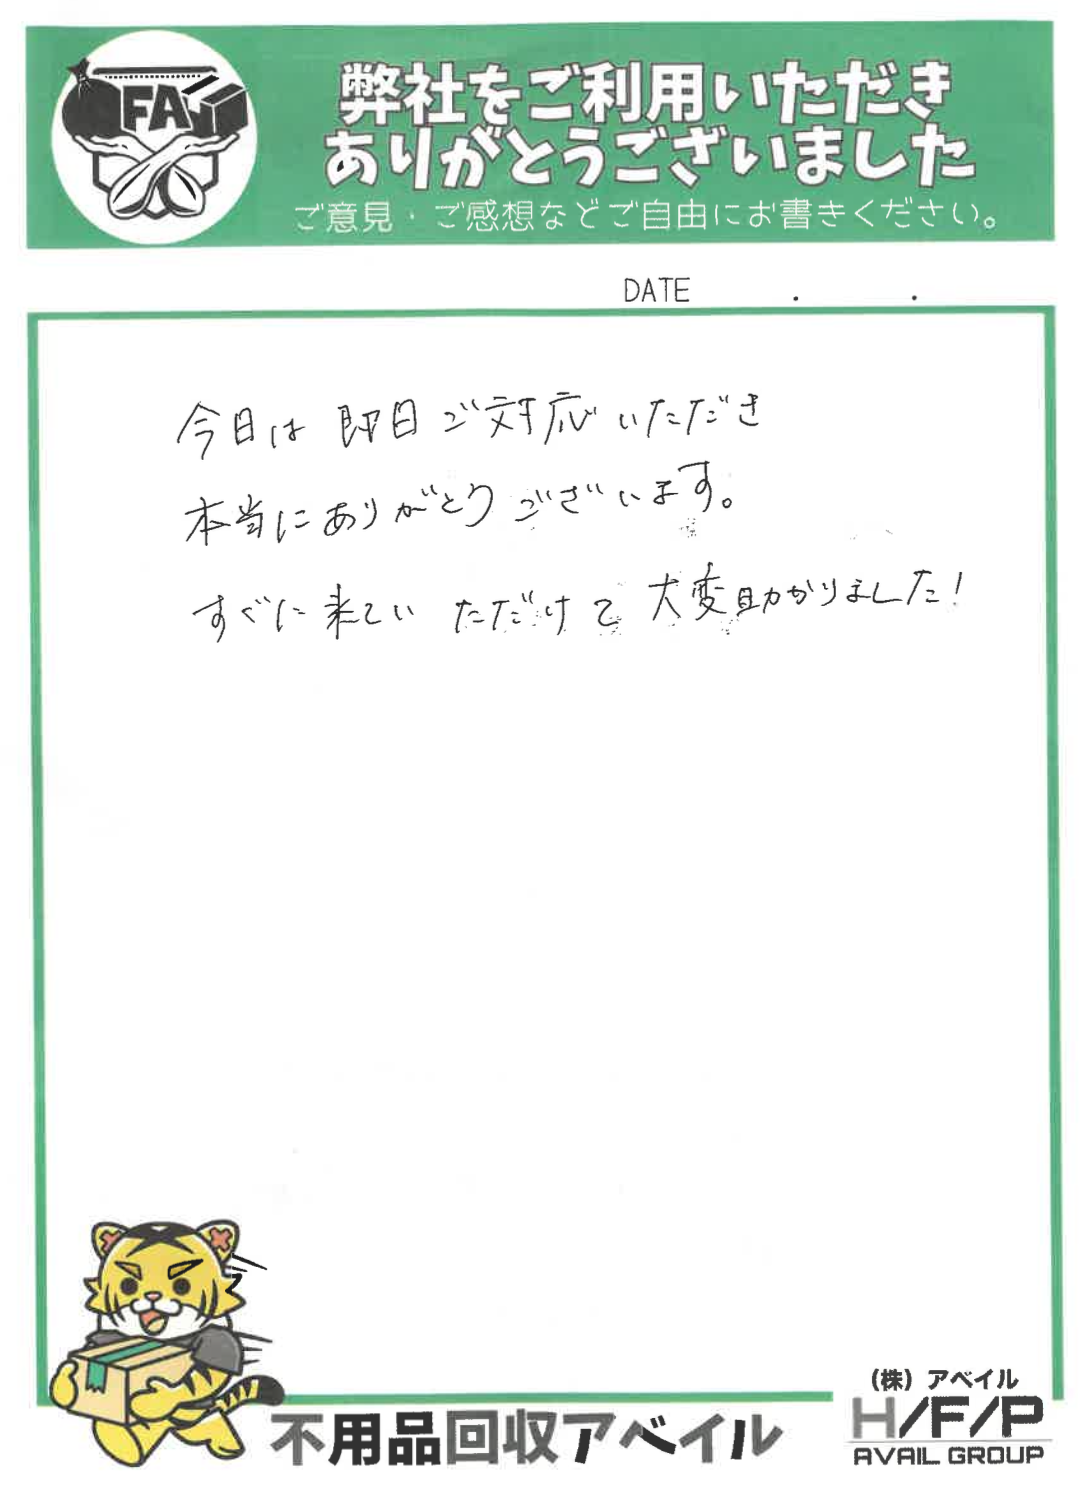 FA
弊社をご利用いただき
ありがとうございました
ご意見・ご感想などご自由にお書きください。
DATE . .
今日は即日ご対応いただき
本当にありがとうございます。
すぐに来ていただけて大変助かりました!
不用品回収アベイル
(株)アベイル
H/F/P
AVAIL GROUP